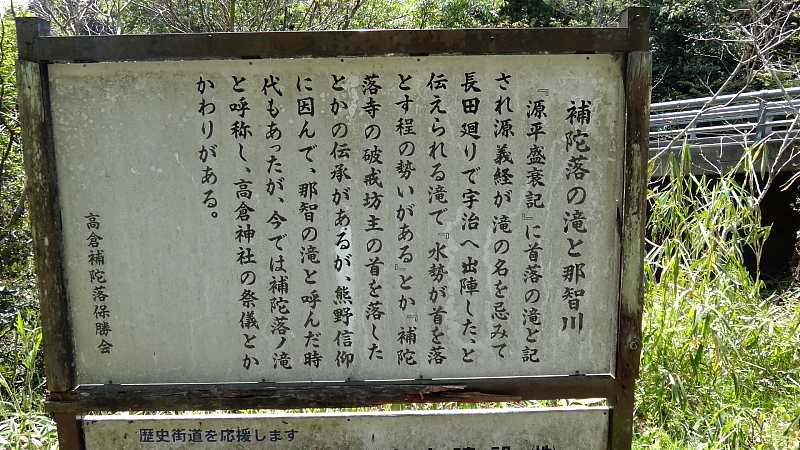 補陀落の滝と那智川
『源平盛衰記』に首落の滝と記
され源義経が滝の名を忌みて
長田廻りで宇治へ出陣した、と
伝えられる滝で『水勢が首を落
とす程の勢いがある』とか『補陀
落寺の破戒坊主の首を落した
とかの伝承があるが、熊野信仰
に因んで、那智の滝と呼んだ時
代もあったが、今では補陀落ノ滝
と呼称し、高倉神社の祭儀とか
かわりがある。
高倉補陀落保勝会
歴史街道を応援します